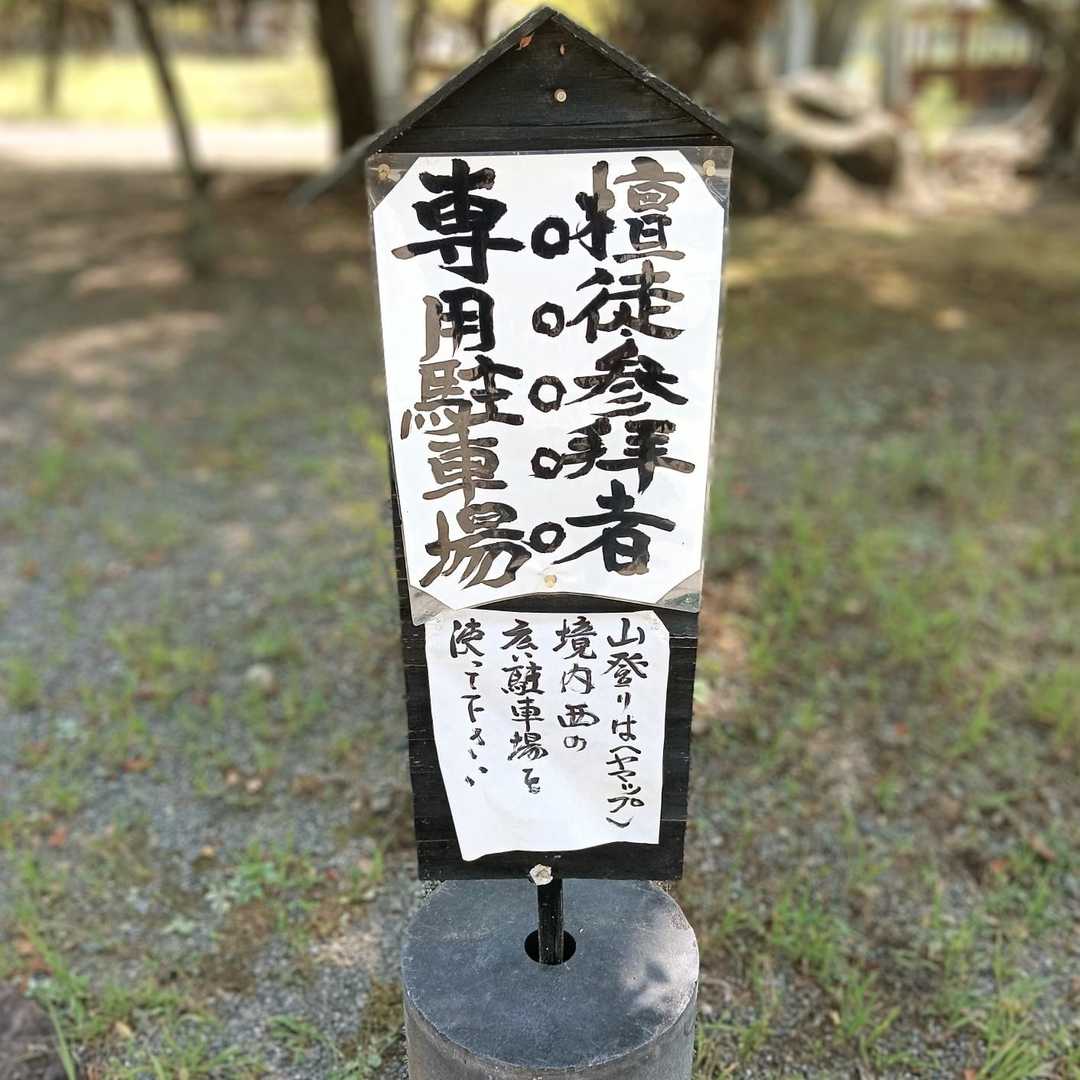 檀徒参拝者
専用駐車場
山登りは(ヤマップ)
境内西の
広い駐車場を
使って下さい